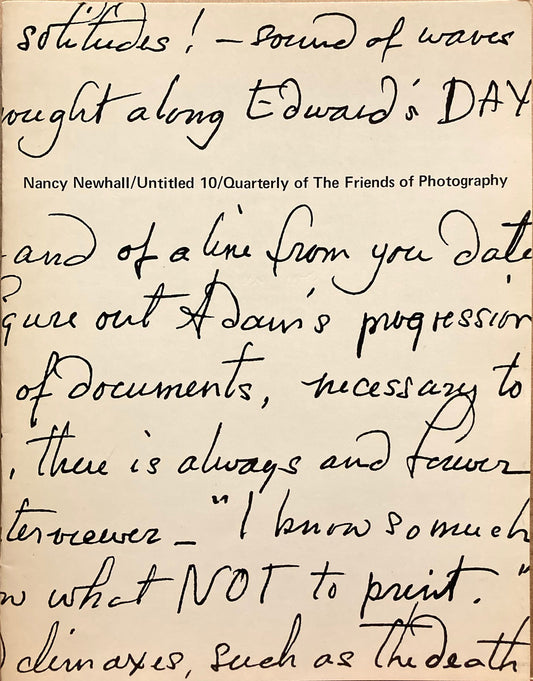 solitudes! – sound of waves
ought along Edward's DAY
Nancy Newhall/Untitled 10/Quarterly of The Friends of Photography
and of a line from you date
gure out Adam's progression
of documents, necessary to
, there is always and forever
terviewer – "I know so much
w what NOT to print."
climaxes, such as the death